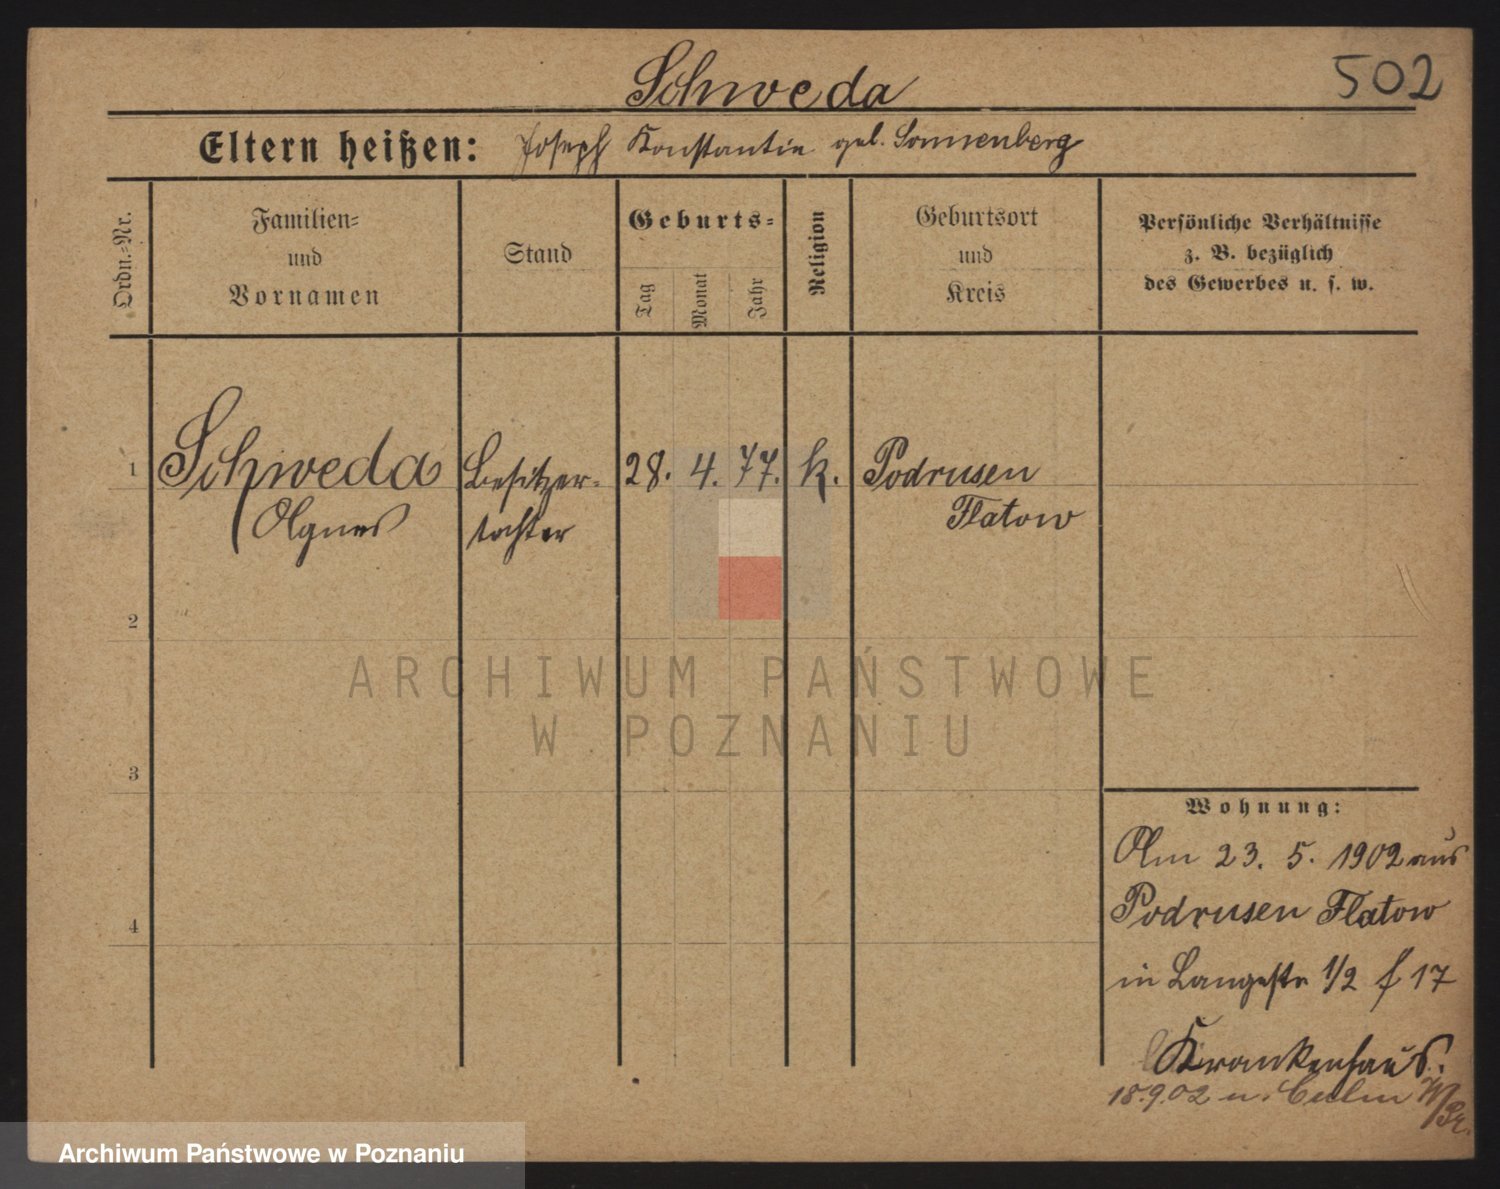 Schweda
502
Eltern heißen: Joseph Konstantin geb. Sonnenberg
Ordn.-Nr.
Familien-
und
Vornamen
Stand
Geburts-
Tag
Monat
Jahr
Religion
Geburtsort
und
Kreis
Persönliche Verhältnisse
z. B. bezüglich
des Gewerbes u. s. w.
1 Schweda Besitzer- 28. 4. 77. k. Podrusen
Agnes tochter Flatow
2
3
4
Wohnung:
Am 23. 5. 1902 aus
Podrusen Flatow
in Langestr 1/2 f 17
Krankenhaus.
18.9.02 n. Culm W/Pr.
ARCHIWUM PAŃSTWOWE
W POZNANIU
Archiwum Państwowe w Poznaniu